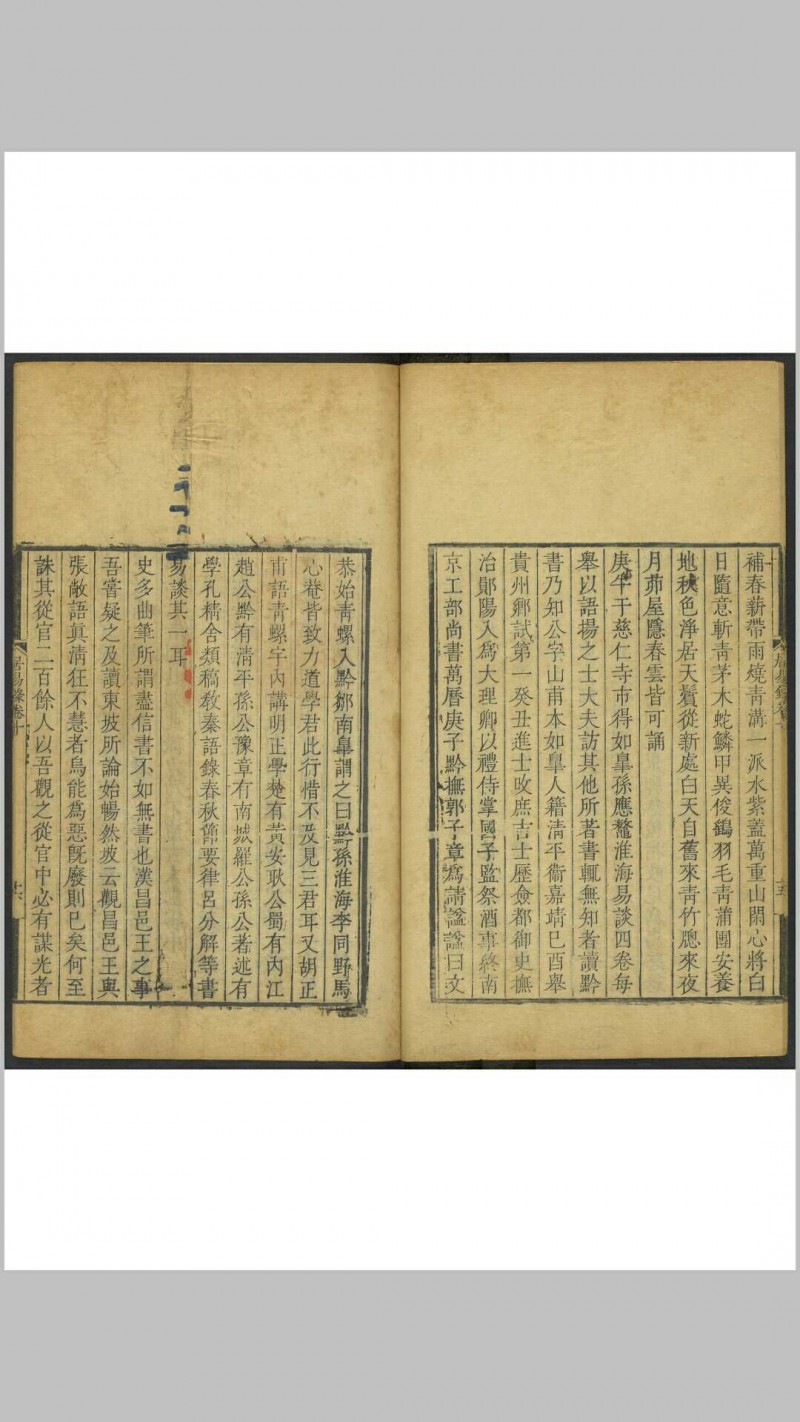 補春薪帶雨燒青溝一派水紫葢萬重山閑心將白
日隨意斬青茅木蛇鱗甲異俊鶴羽毛青蒲團安養
地秋色淨居天鬢從新處白天自舊來青竹牕來夜
月茆屋隱春雲皆可誦
庚午于慈仁寺市得如臯孫應鼇淮海易談四卷每
舉以語揚之士大夫訪其他所著書輒無知者讀黔
書乃知公字山甫本如臯人籍清平衞嘉靖巳酉舉
貴州鄉試第一癸丑進士攺庶吉士歷僉都御史撫
治鄖陽入爲大理卿以禮侍掌國子監祭酒事終南
京工部尚書萬曆庚子黔撫郭子章爲請諡諡曰文
恭始青螺入黔鄒南臯謂之曰黔孫淮海李同野馬
心菴皆致力道學君此行惜不及見三君耳又胡正
甫語青螺宇内講明正學楚有黃安耿公蜀有内江
趙公黔有清平孫公豫章有南城羅公孫公著述有
學孔精舍類稿敎秦語錄春秋節要律呂分解等書
易談其一耳
史多曲筆所謂盡信書不如無書也漢昌邑王之事
吾嘗疑之及讀東坡所論始暢然坡云觀昌邑王與
張敞語眞清狂不慧者烏能爲惡旣廢則巳矣何至
誅其從官二百餘人以吾觀之從官中必有謀光者
居易錄卷十
十六